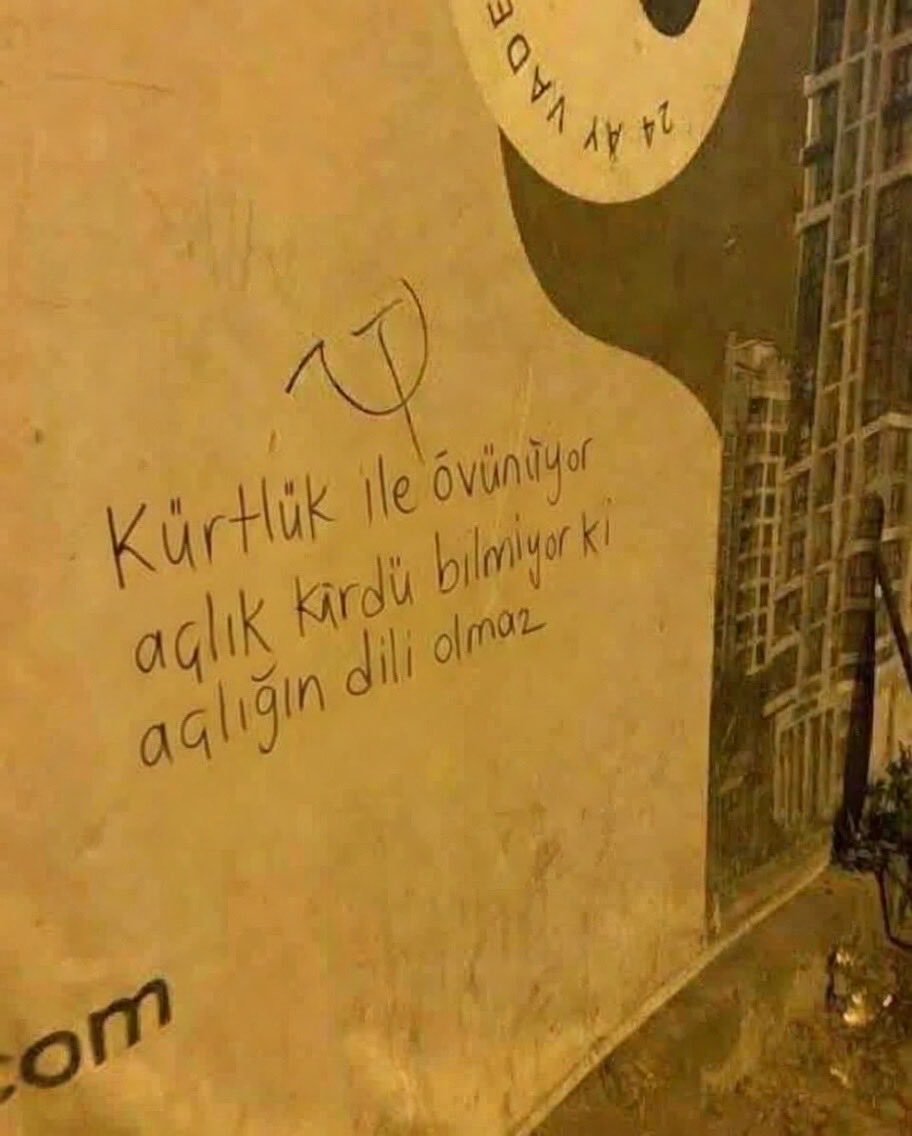 24 AY VADE
Kürtlük ile övünüyor
açlık kürdü bilmiyor ki
açlığın dili olmaz
com